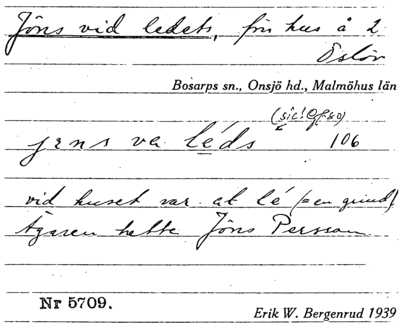 Jöns vid ledets, fri hus å 2
Öslöv
Bosarps sn., Onsjö hd., Malmöhus län
(sic!
jens va léds 106
vid huset var at lé (= en grind)
Ägaren hette Jöns Persson
Nr 5709.
Erik W. Bergenrud 1939